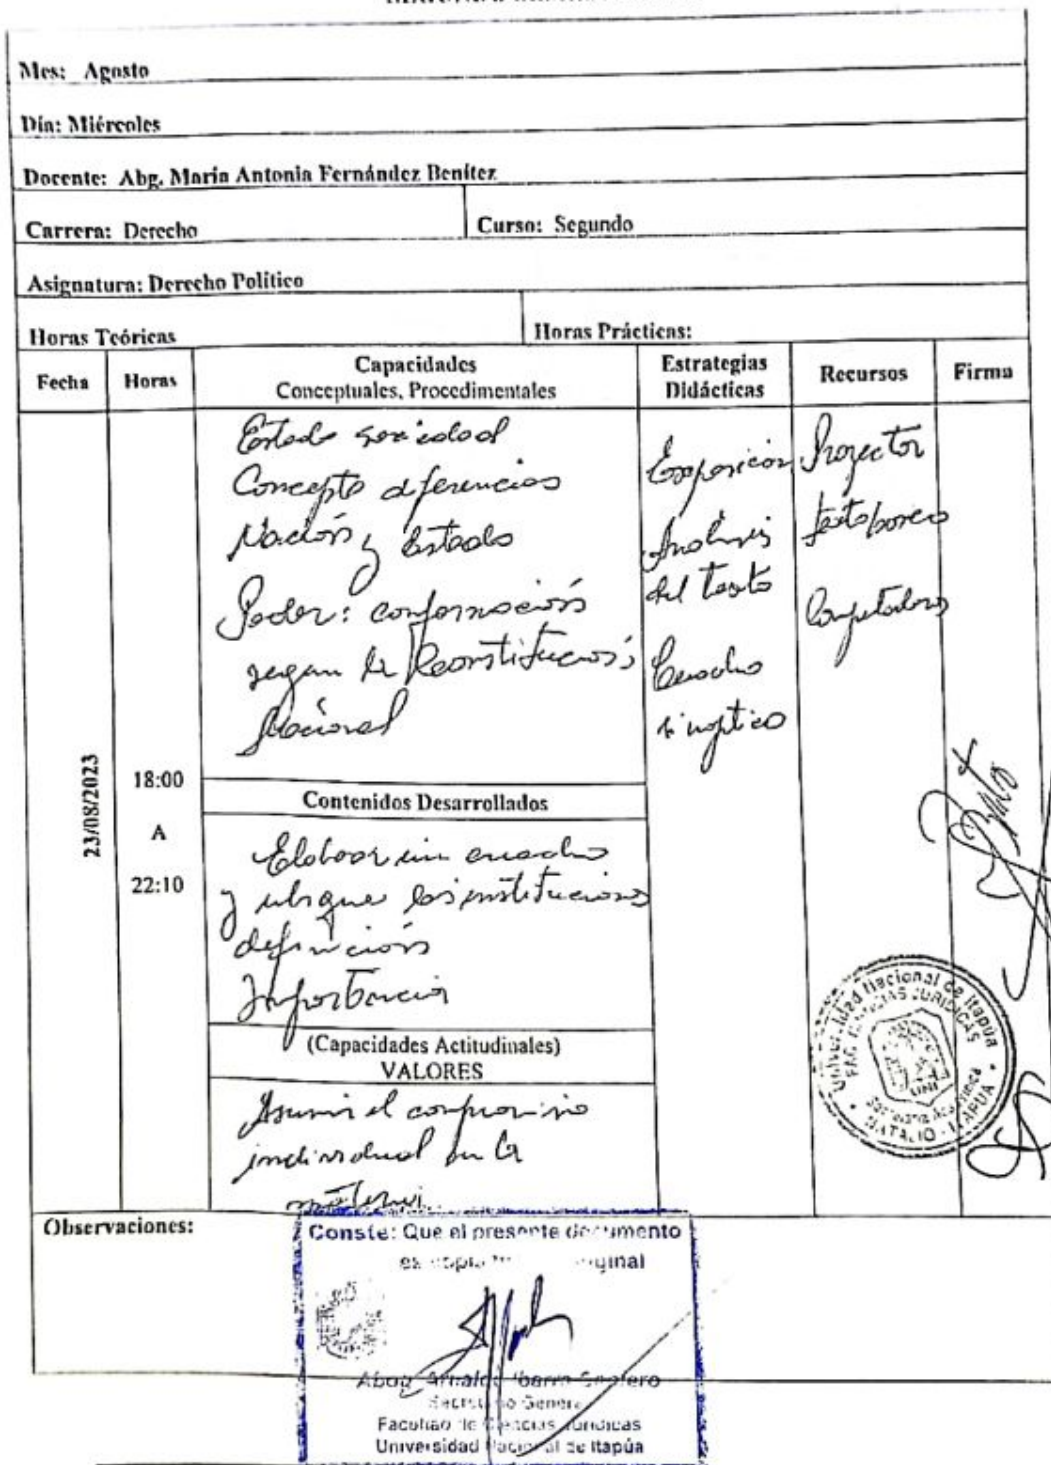 Mes: Agosto
Día: Miércoles
Docente: Abg. María Antonia Fernández Benítez
Carrera: Derecho
Curso: Segundo
Asignatura: Derecho Político
Horas Teóricas
Horas Prácticas:
Fecha
Horas
Capacidades
Conceptuales, Procedimentales
Estrategias
Didácticas
Recursos
Firma
23/08/2023
18:00
A
22:10
Estado sociedad
Concepto diferencias
Nación y Estado
Poder: conformación
segun la Constitución
Nacional
Exposición
Analisis
del texto
Cuadro
sinoptico
Proyector
Computadora
Contenidos Desarrollados
Elaborar un cuadro
y ubique las instituciones
definición
Importancia
(Capacidades Actitudinales)
VALORES
Asumir el compromiso
individual en la
materia
Universidad Nacional de Itapúa
FAC. CIENCIAS JURIDICAS
UNI
NATALIO - ITAPUA
Observaciones:
Conste: Que el presente documento
es copia original
Abog. Arnaldo Ibarra
Secretario General
Facultad de Ciencias Jurídicas
Universidad Nacional de Itapúa